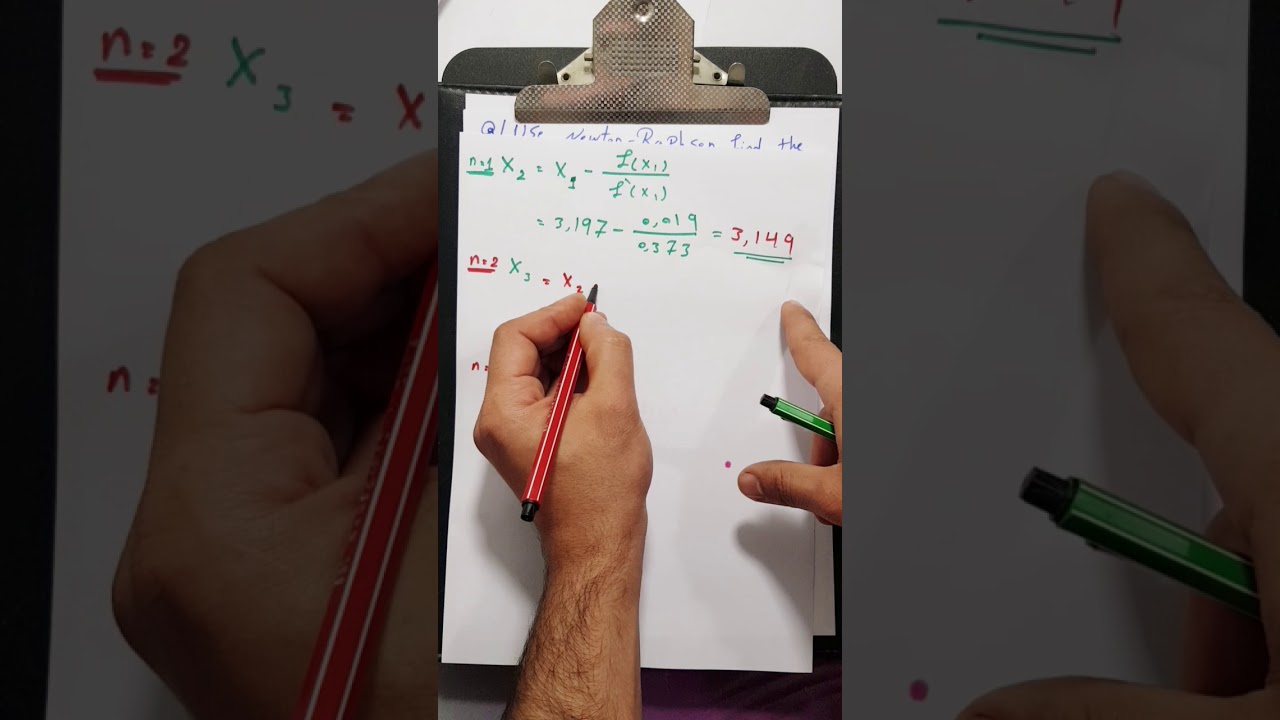 Q/ Use Newton-Raphson find the
n=1 X₂ = X₁ - f(X₁) / f`(X₁)
= 3,197 - 0,019 / 0,373 = 3,149
n=2 X₃ = X₂
n=